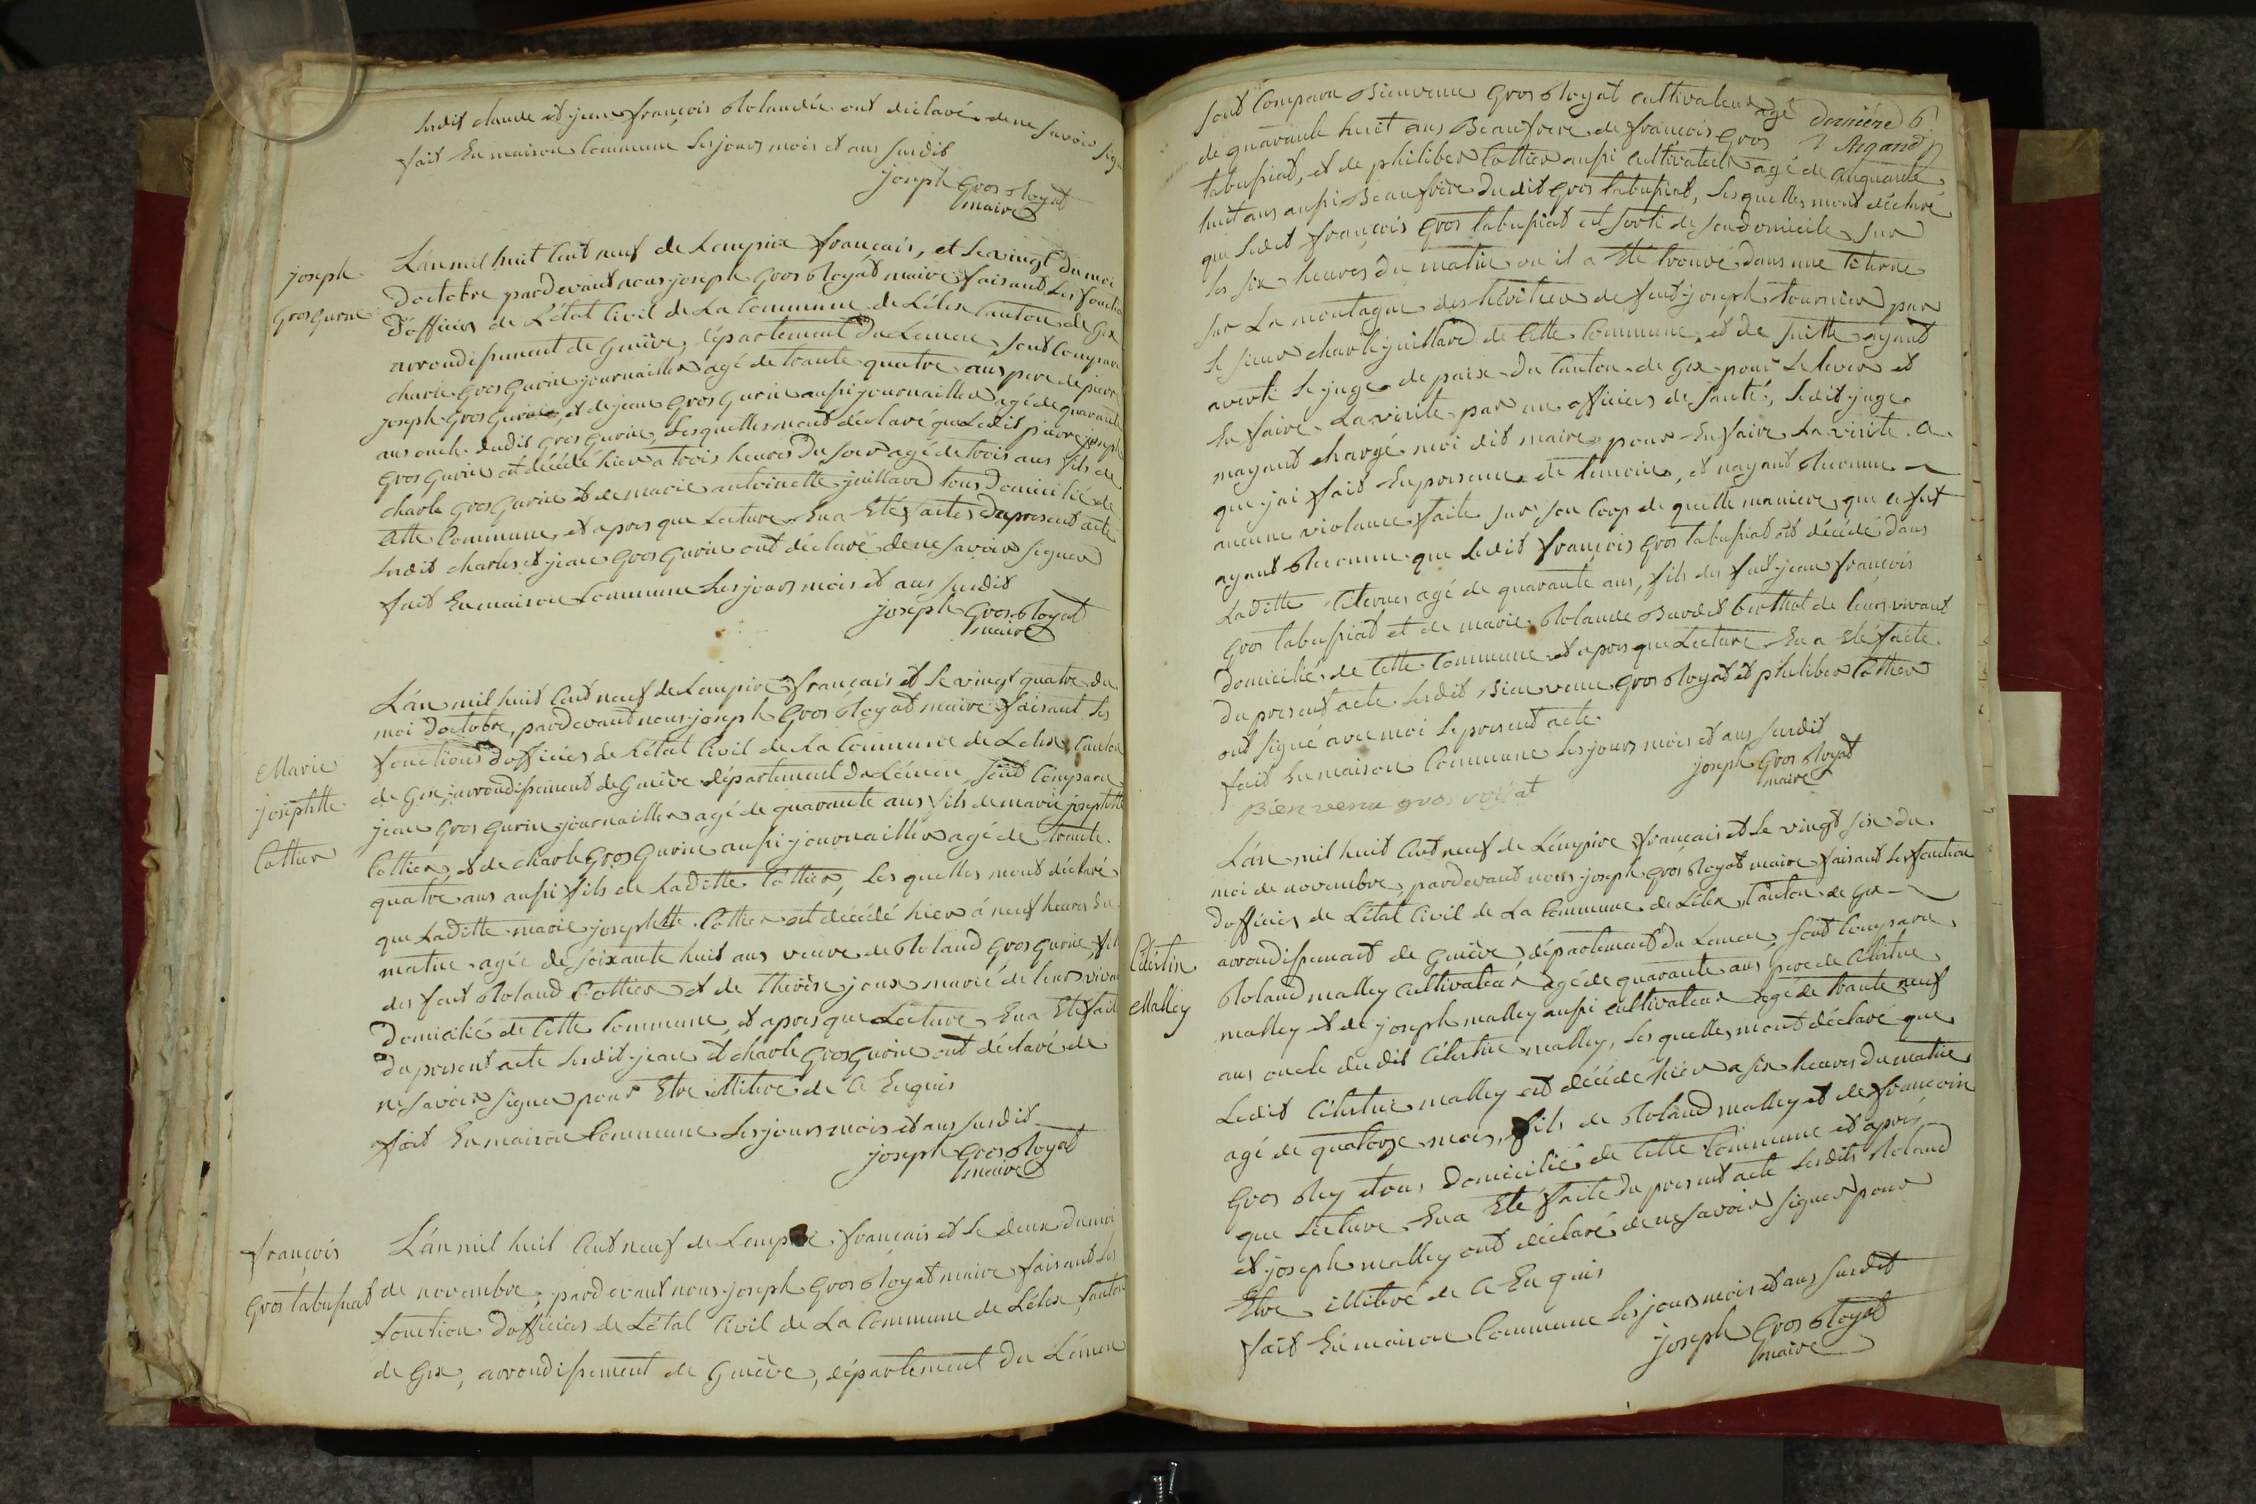 susdit claude et jean françois Rolandée ont déclaré de ne savoir sig
fait En maison Commune les jours mois et ans susdit
joseph Gros Royat
maire
joseph
Gros Gurin
L'an mil huit Cent neuf de Lempire français, et le vingt du moi
Doctobre pardevant nous joseph Gros Royat maire faisant les fonctio
d'officier de L'état Civil de La Commune de Lélex Canton de Gex
arrondissement de Genève, département du Leman, sont Comparu
charle Gros Gurin journaillier agé de trante quatre ans pere de pierre
joseph Gros Gurin, et de jean Gros Gurin aussi journaillier agé de quarante
ans oncle dudit Gros Gurin, Lesquelles mont déclaré que Ledit pierre joseph
Gros Gurin est décédé hier a trois heures Du soir agé de trois ans fils de
charle Gros Gurin et de marie antoinette juillard tous Domicilié de
Cette Commune, et apres que Lecture En a Eté faites Du present acte
susdit charles et jean Gros Gurin ont déclaré de ne savoir signer
fait En maison Commune Les jours mois et ans susdit
joseph Gros Royat
maire
Marie
josephtte
Cottier
L'an mil huit Cent neuf de Lempire français et le vingt quatre du
moi doctobre, pardevant nous joseph Gros Royat maire faisant les
fonctions d'officier de L'état Civil de La Commune de Lelex Canton
de Gex, arrondissement de Genève département du Léman, sont Comparu
jean Gros Gurin journaillier agé de quarante ans fils de marie josephtte
Cottier, et de charle Gros Gurin aussi journaillier agé de trante
quatre ans aussi fils de Laditte Cottier, Les quelles mont déclaré
que Laditte marie josephtte Cottier est décédé hier à neuf heures du
matin agée de soixante huit ans veuve de Roland Gros Gurin, fil
des feut Roland Cottier et de thérèse joux marié de leurs vivan
Domicilié de Cette Commune, et apres que Lecture En a Eté fait
Du present acte susdit jean et charle Gros Gurin ont déclaré de
ne savoir signer pour Etre illiteré de Ce Enquis
fait En maison Commune Les jours mois et ans susdit
joseph Gros Royat
maire
françois
Gros tabussiat
L'an mil huit Cent neuf de Lempire français et le deux du moi
de novembre, pardevant nous joseph Gros Royat maire faisant les
fonction d'officier de L'état Civil de La Commune de Lélex, Canton
de Gex, arrondissement de Genève, département du Léman
sont Comparu Bienvenu Gros Royat cultivateur agé
dernière 6
de quarante huit ans Beaufrere de françois Gros
Argand
tabussiat, et de philiber Cottier aussi cultivateur agé de Cinquante
huit ans aussi Beaufrère dudit Gros tabussiat, Lesquelles mont déclaré
que ledit françois Gros tabussiat est sorti de son domicile sur
les six heures du matin ou il a Eté trouvé dans une Citerne
sur La montagne des hévitier de feut joseph tournier par
le sieur charle juillard de Cette Commune, et de suitte ayant
averti le juge de paix du Canton de Gex pour le lever et
En faire La visite par un officier de santé, ledit juge
mayant chargé moi dit maire pour En faire La visite. a
que jai fait En presence de temoins, et nayant Reconnu
aucune violance faite sur son Corp de quelle maniere que ce fut
ayant Reconnu que Ledit françois Gros tabussiat est décédé dans
Laditte Citernes agé de quarante ans, fils des feut jean françois
Gros tabussiat et de marie Rolande Burdet berthet de leurs vivant
Domicilié de Cette Commune et apres que Lecture En a Eté faite
Du present acte susdit Bienvenu Gros Royat et philiber Cottier
ont signé avec moi le present acte
fait En maison Commune les jours mois et ans susdit
joseph Gros Royat
maire
Bien venu gros royat
Célestin
Malley
L'an mil huit Cent neuf de Lémpire français et le vingt six du
moi de novembre, pardevant nous joseph Gros Royat maire faisant les fonction
d'officier de L'état Civil de La Commune de Lélex, Canton de Gex
arrondissement de Genève, département du Leman, sont Comparu
Roland malley cultivateur agé de quarante ans pere de Célestin
malley et de joseph malley aussi cultivateur agé de trante neuf
ans oncle dudit Célestin malley, Les quelles mont déclaré que
Ledit Célestin malley est décédé hier a six heures du matin
agé de quatorze mois, fils de Roland malley et de françoise
Gros Rey et tous Domicilié de Cette Commune et après
que Lecture En a Eté faite Du present acte susdits Roland
et joseph malley ont déclaré de ne savoir signer pour
Etre illiteré de Ce Enquis
fait En maison Commune Les jours mois et ans susdit
joseph Gros Royat
maire